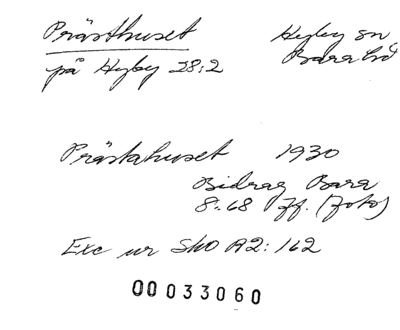 Prästhuset Hyby sn
på Hyby 28:2 Bara hd
Prästahuset 1930
Bidrag Bara
8:68 ff. (foto)
Exc ur SkO A2: 162
00033060